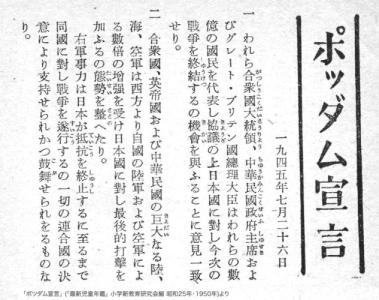 ポツダム宣言
一九四五年七月二十六日
一 われら合衆國大統領、中華民國政府主席およ
びグレート・ブリテン國總理大臣はわれらの數
億の國民を代表し協議の上日本國に對し今次の
戰爭を終結するの機會を與ふることに意見一致
せり。
二 合衆國、英帝國および中華民國の巨大なる陸、
海、空軍は西方より自國の陸軍および空軍によ
る數倍の增强を受け日本國に對し最後的打擊を
加ふるの態勢を整へたり。
右軍事力は日本が抵抗を終止するに至るまで
同國に對し戰爭を遂行するの一切の連合國の決
意により支持せられかつ鼓舞せられをるものな
り。
「ポツダム宣言」(『最新児童年鑑』小学新教育研究会編 昭和25年・1950年)より